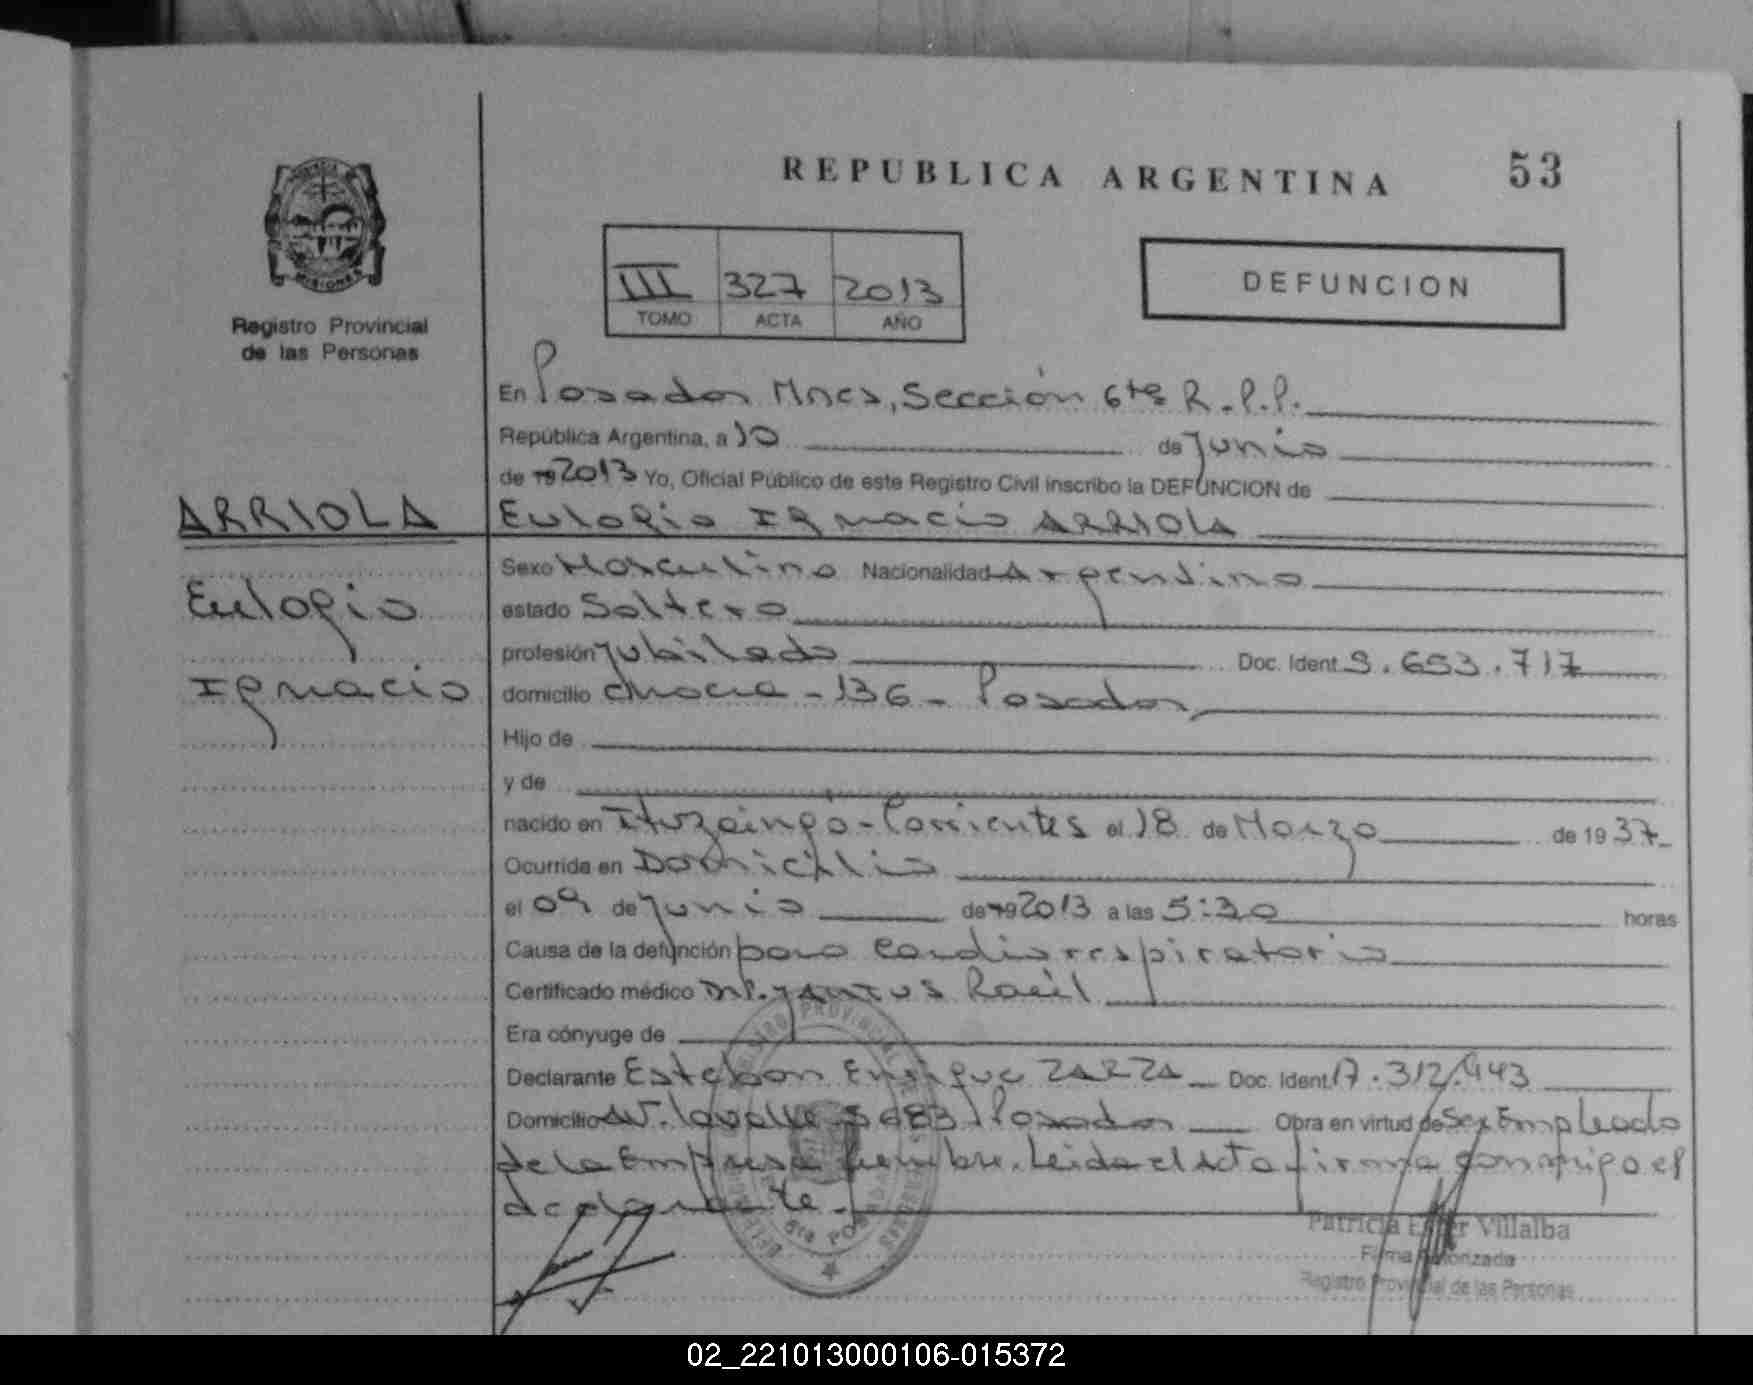 REPUBLICA ARGENTINA 53
PROVINCIA MISIONES
Registro Provincial
de las Personas
III 327 2013
TOMO ACTA AÑO
DEFUNCION
En Posadas Mnes, Sección 6ta R.P.P.
República Argentina, a 10 de Junio
de 19 2013 Yo, Oficial Público de este Registro Civil inscribo la DEFUNCION de
ARRIOLA Eulogio Ignacio ARRIOLA
Sexo Masculino Nacionalidad Argentino
Eulogio
estado Soltero
profesión Jubilado Doc. Ident. 5.653.717
Ignacio
domicilio Chacra - 136 - Posadas
Hijo de
y de
nacido en Ituzaingó - Corrientes el 18 de Marzo de 1937
Ocurrida en Domicilio
el 09 de Junio de 19 2013 a las 5:30 horas
Causa de la defunción paro cardiorrespiratorio
Certificado médico Dr. Raúl
Era cónyuge de
Declarante Esteban Enrique ZARZA Doc. Ident. 17.312.443
Domicilio Av. Lavalle 5683 Posadas Obra en virtud de Ser Empleado
de la Empresa fúnebre. Leida el Acta firma conmigo el
declarante.
Patricia Villalba
Firma Autorizada
Registro Provincial de las Personas
02_221013000106-015372